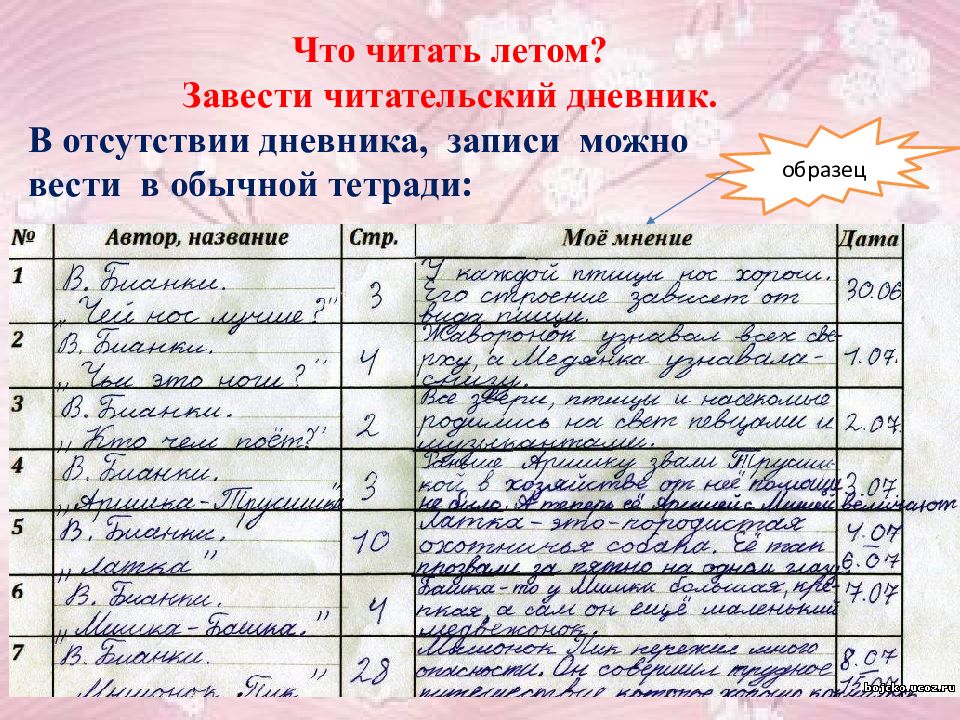 Что читать летом?
Завести читательский дневник.
В отсутствии дневника, записи можно
вести в обычной тетради:
образец
№ Автор, название Стр. Моё мнение Дата
1 В. Бианки. „Чей нос лучше?" 3
У каждой птицы нос хорош.
Его строение зависит от
вида пищи.
30.06
2 В. Бианки. „Чьи это ноги?" 4
Жаворонок узнавал всех све-
рху, а Медянка узнавала-
снизу.
1.07.
3 В. Бианки. „Кто чем поёт?" 2
Все звери, птицы и насекомые
родились на свет певцами и
музыкантами.
2.07.
4 В. Бианки. „Аришка-Трусишка" 3
Раньше Аришку звали Трусиш-
кой в хозяйстве от неё помощи
не было. А теперь её Аришей с Мишей величают
3.07
5 В. Бианки. „Латка" 10
Латка - это-породистая
охотничья собака. Её так
прозвали за пятно на одном глазу
4.07
6.07
6 В. Бианки. „Мишка-Башка." 4
Башка-то у Мишки большая, кре-
пкая, а сам он ещё маленький
медвежонок.
7.07
7 В. Бианки. „Мышонок Пик 28
Мышонок Пик пережил много
опасности. Он совершил трудное
путешествие которое хорошо
8.07
bojcko.ucoz.ru